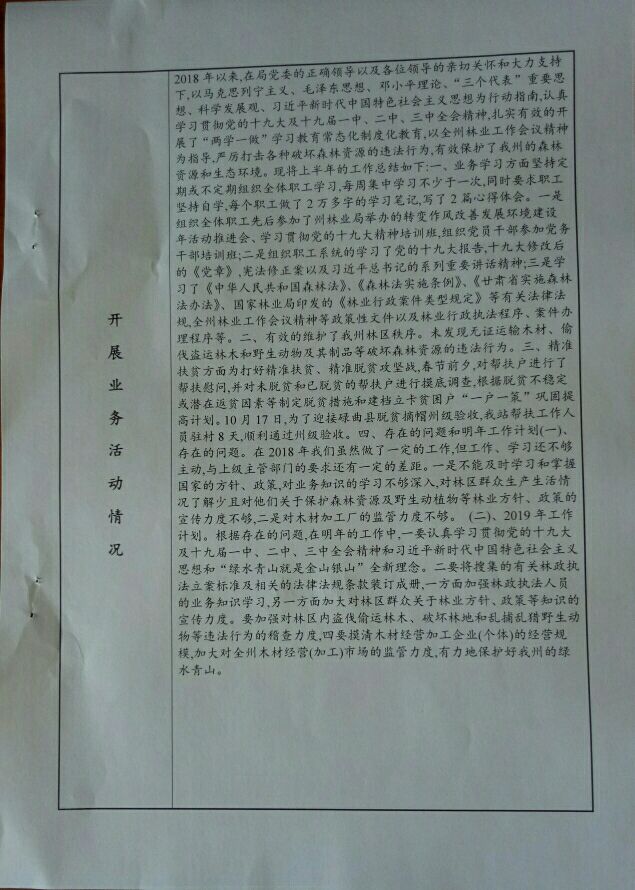 开展业务活动情况
2018年以来,在局党委的正确领导以及各位领导的亲切关怀和大力支持
下,以马克思列宁主义、毛泽东思想、邓小平理论、“三个代表”重要思
想、科学发展观、习近平新时代中国特色社会主义思想为行动指南,认真
学习贯彻党的十九大及十九届一中、二中、三中全会精神,扎实有效的开
展了“两学一做”学习教育常态化制度化教育,以全州林业工作会议精神
为指导,严厉打击各种破坏森林资源的违法行为,有效保护了我州的森林
资源和生态环境。现将上半年的工作总结如下:一、业务学习方面坚持定
期或不定期组织全体职工学习,每周集中学习不少于一次,同时要求职工
坚持自学,每个职工做了2万多字的学习笔记,写了2篇心得体会。一是
组织全体职工先后参加了州林业局举办的转变作风改善发展环境建设
年活动推进会、学习贯彻党的十九大精神培训班,组织党员干部参加党务
干部培训班;二是组织职工系统的学习了党的十九大报告,十九大修改后
的《党章》,宪法修正案以及习近平总书记的系列重要讲话精神;三是学
习了《中华人民共和国森林法》、《森林法实施条例》、《甘肃省实施森林
法办法》、国家林业局印发的《林业行政案件类型规定》等有关法律法
规,全州林业工作会议精神等政策性文件以及林业行政执法程序、案件办
理程序等。二、有效的维护了我州林区秩序。未发现无证运输木材、偷
伐盗运林木和野生动物及其制品等破坏森林资源的违法行为。三、精准
扶贫方面为打好精准扶贫、精准脱贫攻坚战,春节前夕,对帮扶户进行了
帮扶慰问,并对未脱贫和已脱贫的帮扶户进行摸底调查,根据脱贫不稳定
或潜在返贫因素等制定脱贫措施和建档立卡贫困户“一户一策”巩固提
高计划。10月17日,为了迎接碌曲县脱贫摘帽州级验收,我站帮扶工作人
员驻村8天,顺利通过州级验收。四、存在的问题和明年工作计划(一)、
存在的问题。在2018年我们虽然做了一定的工作,但工作、学习还不够
主动,与上级主管部门的要求还有一定的差距。一是不能及时学习和掌握
国家的方针、政策,对业务知识的学习不够深入,对林区群众生产生活情
况了解少且对他们关于保护森林资源及野生动植物等林业方针、政策的
宣传力度不够,二是对木材加工厂的监管力度不够。 (二)、2019年工作
计划。根据存在的问题,在明年的工作中,一要认真学习贯彻党的十九大
及十九届一中、二中、三中全会精神和习近平新时代中国特色社会主义
思想和“绿水青山就是金山银山”全新理念。二要将搜集的有关林政执
法立案标准及相关的法律法规条款装订成册,一方面加强林政执法人员
的业务知识学习,另一方面加大对林区群众关于林业方针、政策等知识的
宣传力度。要加强对林区内盗伐偷运林木、破坏林地和乱捕乱猎野生动
物等违法行为的稽查力度,四要摸清木材经营加工企业(个体)的经营规
模,加大对全州木材经营(加工)市场的监管力度,有力地保护好我州的绿
水青山。